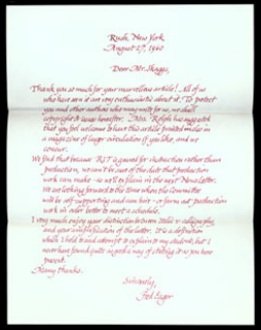 Rush, New York
August 27, 1960
Dear Mr. Skaggs,
Thank you so much for your marvelling article! All of us
who have seen it are very enthusiastic about it. To protect
you and other authors who may write for us, we shall
copyright it issue hereafter. Mrs. Ralph has suggested
that you feel welcome to have this article printed under in
a magazine of larger circulation if you like, and we
concur.
We find that because RIT is geared for instruction rather than
production, we can't be sure of the date that production
work can make - as we'll explain in the next Newsletter.
We are looking forward to the time when the Committee
will be self-supporting and can hire - or farm out production
work in order to meet a schedule.
I very much enjoy your distinction between Italic & calligraphy
and your simplification of the letter. It is a definition
which I hold to and attempt to explain to my students, but I
never have found quite so good a way of stating it as you have
present.
Many thanks.
Sincerely,
Fred Eager